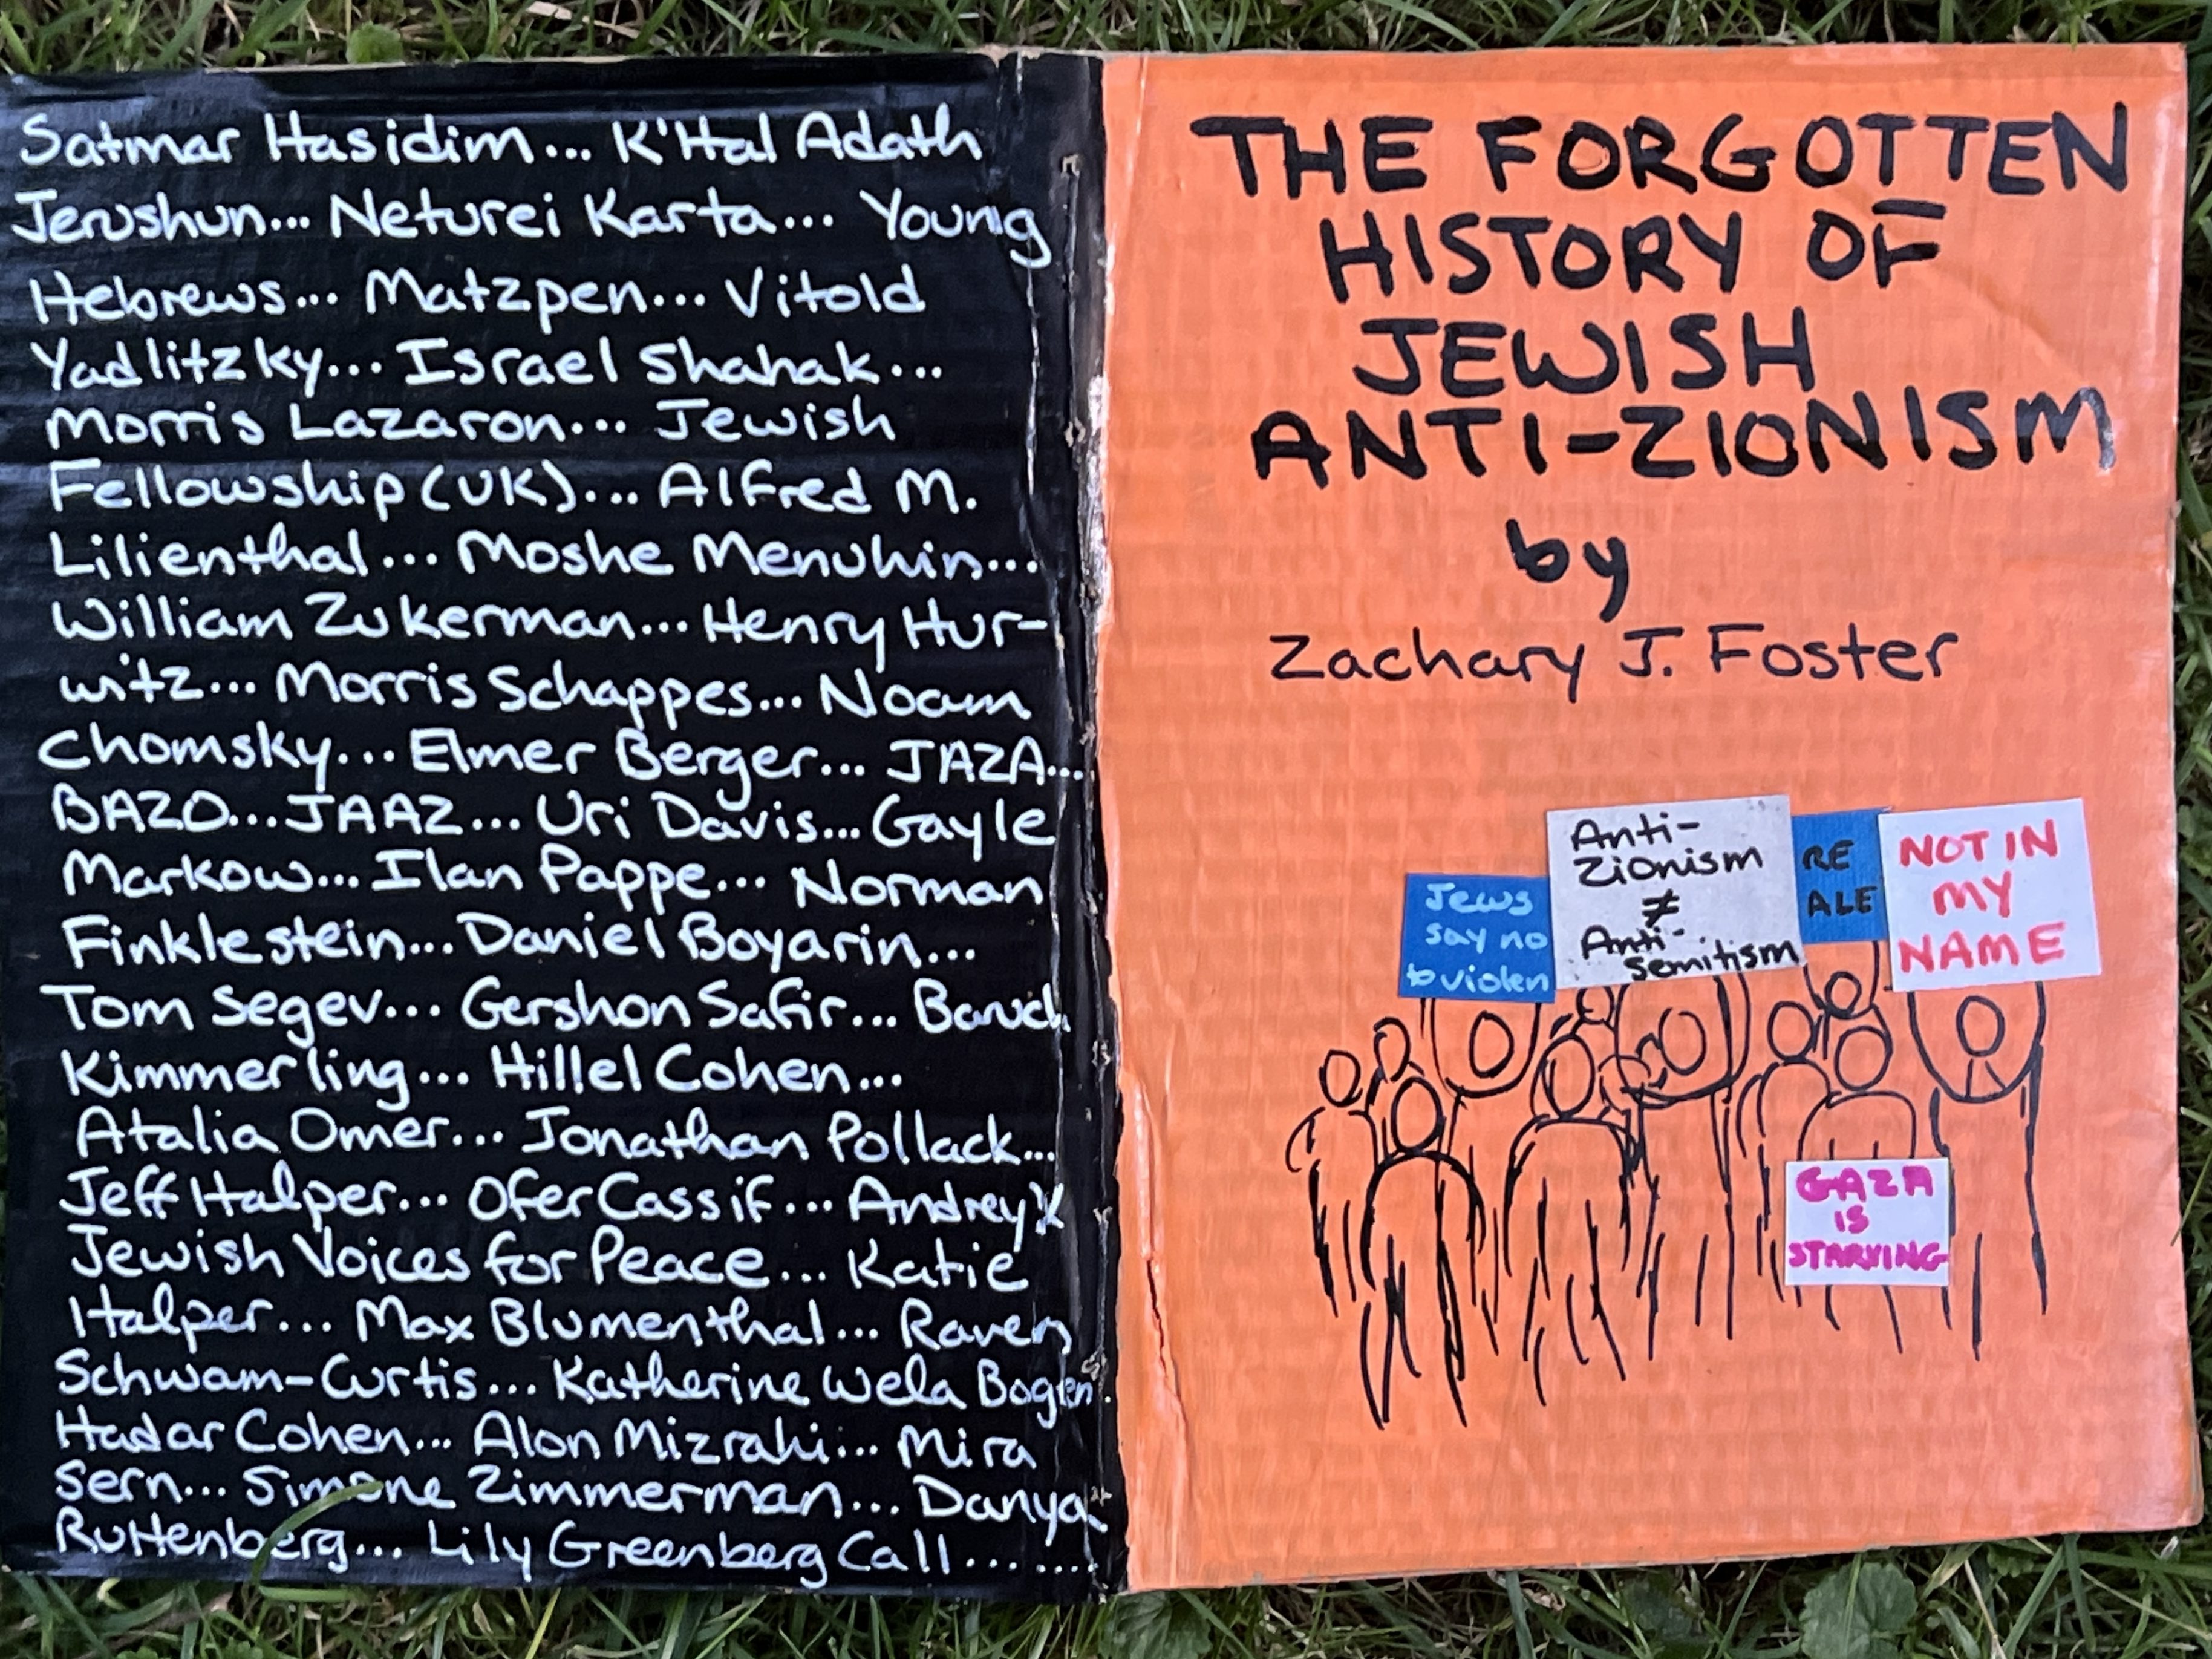 Satmar Hasidim... K'Hal Adath
Jerushun... Neturei Karta... Young
Hebrews... Matzpen... Vitold
Yadlitzky... Israel Shahak...
Morris Lazaron... Jewish
Fellowship (UK)... Alfred M.
Lilienthal... Moshe Menuhin...
William Zukerman... Henry Hur-
witz... Morris Schappes... Noam
Chomsky... Elmer Berger... JAZA...
BAZO... JAAZ... Uri Davis... Gayle
Markow... Ilan Pappe... Norman
Finklestein... Daniel Boyarin...
Tom Segev... Gershon Safir... Baruch
Kimmerling... Hillel Cohen...
Atalia Omer... Jonathan Pollack...
Jeff Halper... Ofer Cassif... Andrey X
Jewish Voices for Peace... Katie
Halper... Max Blumenthal... Raven
Schwam-Curtis... Katherine Wela Bogen.
Hadar Cohen... Alon Mizrahi... Mira
Sern... Simone Zimmerman... Danya
Ruttenberg... Lily Greenberg Call... ....
THE FORGOTTEN
HISTORY OF
JEWISH
ANTI-ZIONISM
by
Zachary J. Foster
Jews
say no
to violen
Anti-
Zionism
≠
Anti-
Semitism
RE
ALE
NOT IN
MY
NAME
GAZA
IS
STARVING